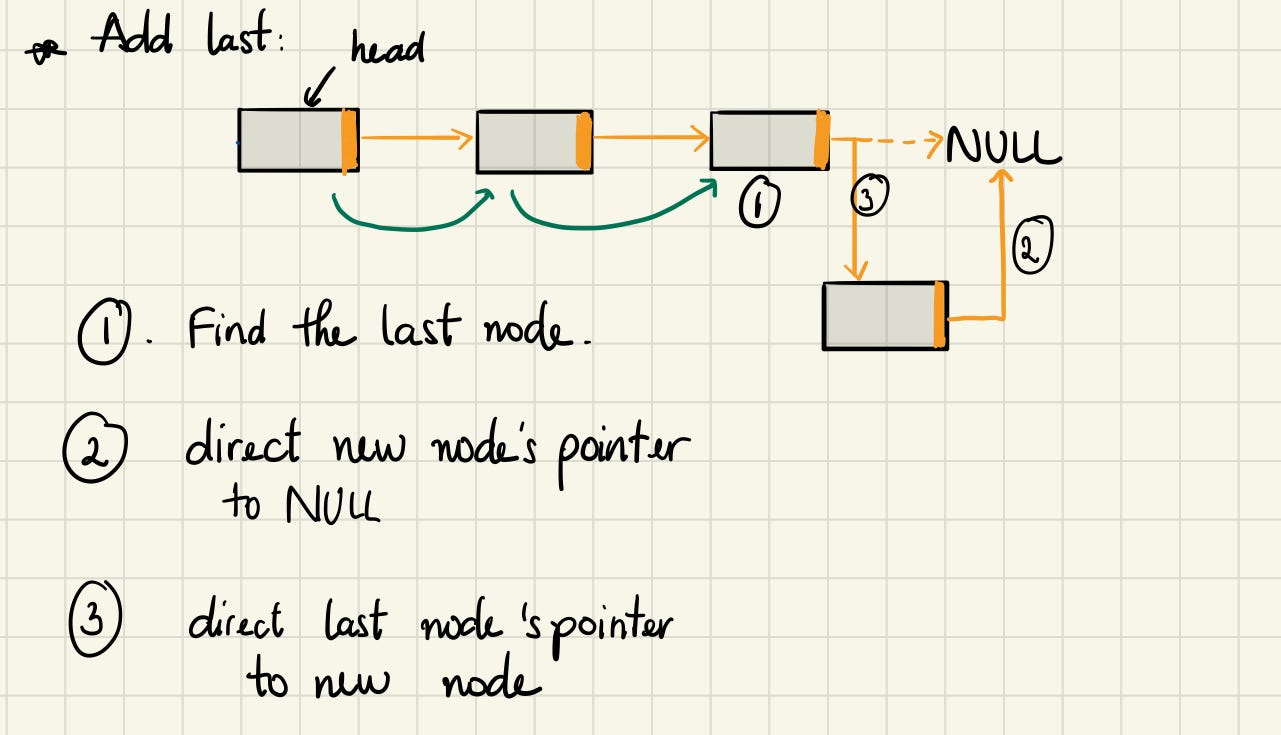 * Add last:
head
NULL
①
③
②
①. Find the last node.
② direct new node's pointer
to NULL
③ direct last node's pointer
to new node